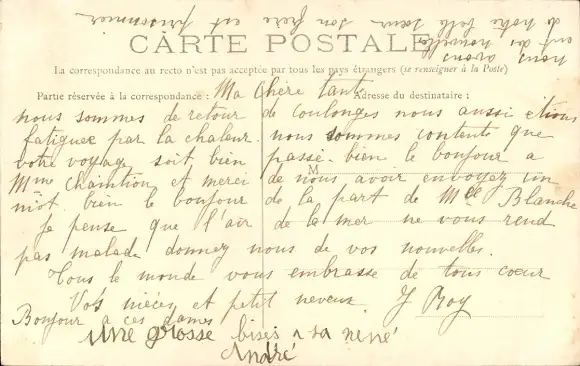 nous avons
eut des nouvelles
de notre belle sœur son frère est prisonnier
CARTE POSTALE
La correspondance au recto n'est pas acceptée par tous les pays étrangers (se renseigner à la Poste)
Partie réservée à la correspondance : Adresse du destinataire :
Ma Chère tante
nous sommes de retour de Coulonges nous aussi etions
fatiguee par la chaleur. nous sommes contente que
votre voyage soit bien passé. bien le bonjour a
M
Mme et merci de nous avoir envoyez un
mot bien le bonjour de la part de Melle Blanche
Je pense que l'air de la mer ne vous rend
pas malade donnez nous de vos nouvelles.
Tous le monde vous embrasse de tous cœur
Vos nièces et petit neveux J Roy
Bonjour a ces dames
une grosse bises a sa nené
André